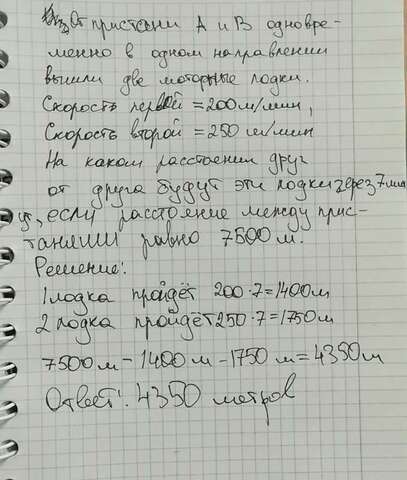 От пристани А и В одновре-
менно в одном направлении
вышли две моторные лодки.
Скорость первой = 200 м/мин,
Скорость второй = 250 м/мин
На каком расстоении друг
от друга будут эти лодки через 7 мин
ут, если расстояние между прис-
танями равно 7500 м.
Решение:
1 лодка пройдёт 200·7=1400м
2 лодка пройдёт 250·7=1750м
7500м - 1400м - 1750м = 4350м
Ответ: 4350 метров